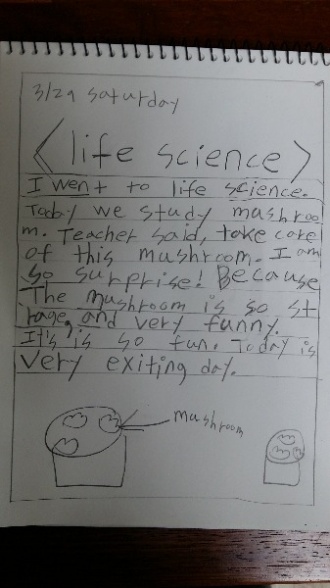 3/29 saturday
<life science>
I went to life science.
Today we study mushroo
m. Teacher said, take care
of this mushroom. I am
so surprise! Because
The mushroom is so st
rage, and very funny.
It's is so fun. Today is
very exiting day.
mushroom